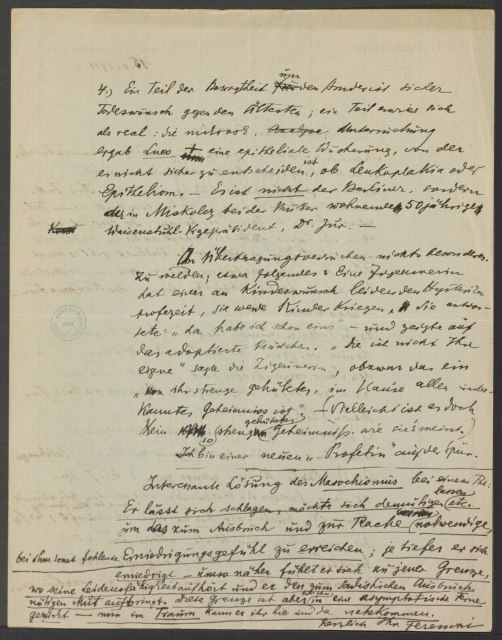 um
4.) Ein Teil der Besorgtheit für den Bruder ist sicher
Todeswunsch gegen den Ältesten; ein Teil erwies sich
als real: die mikrosk. Analyse Untersuchung
ergab eine epitheliale Wucherung, von der
es nicht sicher zu entscheiden ist, ob Leukoplakia oder
Epitheliom. – Es ist nicht der Berliner, sondern
der in Miskolcz bei der Mutter wohnende 50jährige
Waisenstuhl-Vizepräsident, Dr. Jur. –
An Übertragungsversuchen nichts besonderes
zu melden; etwa folgendes: Eine Zigeunerin
hat einer an Kindeswunsch leidenden Hysterica
profezeit, sie werde Kinder kriegen. Sie antwor-
tete: „da habe ich schon eins" – und zeigte auf
das adoptierte Mädchen. „Die ist nicht Ihr
eigne" sagte die Zigeunerin, obzwar das ein
„von ihr strenge gehütetes, im Hause allen unbe-
kanntes Geheimniss ist". (Vielleicht ist es doch
kein so streng gehütetes Geheimniss, wie sie meint.)
Ich bin einer neuen „Profetin" auf der Spur.
Interessante Lösung des Masochismus bei einem Pat:
Er lässt sich schlagen, möchte sich demütigen lassen etc.
um das zum Ausbruch und zur Rache notwendige,
bei ihm sonst fehlende Erniedrigungsgefühl zu erreichen; je tiefer er sich
erniedrigt – umso näher fühlt er sich zu jener Grenze,
wo seine Leidensfähigkeit aufhört und er den zum sadistischen Ausbruch
nötigen Mut aufbringt. Diese Grenze ist aber in eine asymptotische Ferne
gerückt – nur im Traum kann er ihr hie und da nahekommen.
Herzlich Ihr Ferenczi